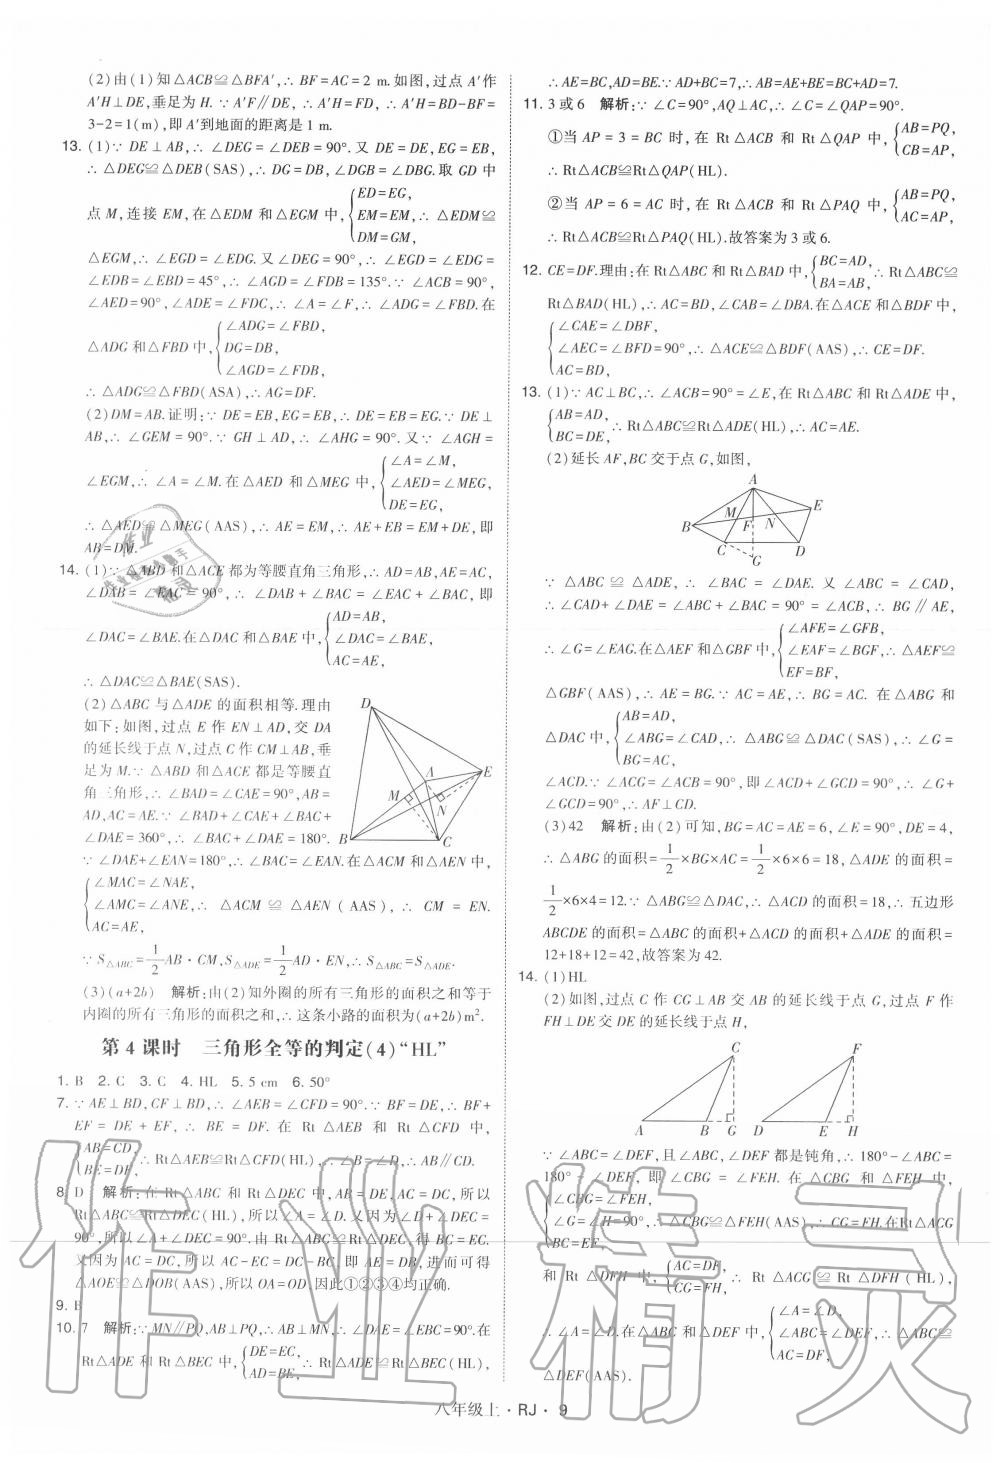 (2)由(1)知△ACB≌△BFA′,∴ BF=AC=2 m.如图,过点 A′作
A′H⊥DE,垂足为 H.∵ A′F∥DE,∴ A′H=FD,∴ A′H=BD-BF=
3-2=1(m),即 A′到地面的距离是 1 m.
13. (1)∵ DE⊥AB,∴ ∠DEG=∠DEB=90°.又 DE=DE,EG=EB,
∴ △DEG≌△DEB(SAS),∴ DG=DB,∠DGB=∠DBG.取 GD 中
点 M,连接 EM,在△EDM 和△EGM 中,{ED=EG,
EM=EM,∴ △EDM≌
DM=GM,
△EGM,∴ ∠EGD=∠EDG.又∠DEG=90°,∴ ∠EGD=∠EDG=
∠EDB=∠EBD=45°,∴ ∠AGD=∠FDB=135°.∵ ∠ACB=90°,
∠AED=90°,∠ADE=∠FDC,∴ ∠A=∠F,∴ ∠ADG=∠FBD.在
△ADG 和△FBD 中,{∠ADG=∠FBD,
DG=DB,
∠AGD=∠FDB,
∴ △ADG≌△FBD(ASA),∴ AG=DF.
(2)DM=AB.证明:∵ DE=EB,EG=EB,∴ DE=EB=EG.∵ DE⊥
AB,∴ ∠GEM=90°.∵ GH⊥AD,∴ ∠AHG=90°.又∵ ∠AGH=
∠EGM,∴ ∠A=∠M.在△AED 和△MEG 中,{∠A=∠M,
∠AED=∠MEG,
DE=EG,
∴ △AED≌△MEG(AAS),∴ AE=EM,∴ AE+EB=EM+DE,即
AB=DM.
14. (1)∵ △ABD 和△ACE 都为等腰直角三角形,∴ AD=AB,AE=AC,
∠DAB=∠EAC=90°,∴ ∠DAB+∠BAC=∠EAC+∠BAC,即
∠DAC=∠BAE.在△DAC 和△BAE 中,{AD=AB,
∠DAC=∠BAE,
AC=AE,
∴ △DAC≌△BAE(SAS).
(2)△ABC 与△ADE 的面积相等.理由
如下:如图,过点 E 作 EN⊥AD,交 DA
的延长线于点 N,过点 C 作 CM⊥AB,垂
足为 M.∵ △ABD 和△ACE 都是等腰直
角三角形,∴ ∠BAD=∠CAE=90°,AB=
AD,AC=AE.∵ ∠BAD+∠CAE+∠BAC+
∠DAE=360°,∴ ∠BAC+∠DAE=180°.
D
A
E
M
N
B
C
∵ ∠DAE+∠EAN=180°,∴ ∠BAC=∠EAN.在△ACM 和△AEN 中,
{∠MAC=∠NAE,
∠AMC=∠ANE,∴ △ACM≌△AEN(AAS),∴ CM=EN.
AC=AE,
∵ S△ABC=1/2AB·CM,S△ADE=1/2AD·EN,∴ S△ABC=S△ADE.
(3)(a+2b) 解析:由(2)知外圈的所有三角形的面积之和等于
内圈的所有三角形的面积之和,∴ 这条小路的面积为(a+2b)m².
第 4 课时 三角形全等的判定(4)“HL”
1. B 2. C 3. C 4. HL 5. 5 cm 6. 50°
7. ∵ AE⊥BD,CF⊥BD,∴ ∠AEB=∠CFD=90°.∵ BF=DE,∴ BF+
EF=DE+EF,∴ BE=DF.在 Rt△AEB 和 Rt△CFD 中,
{AB=CD,
BE=DF,∴ Rt△AEB≌Rt△CFD(HL),∴ ∠B=∠D,∴ AB∥CD.
8. D 解析:在 Rt△ABC 和 Rt△DEC 中,AB=DE,AC=DC,所以
Rt△ABC≌Rt△DEC(HL),所以∠A=∠D.又因为∠D+∠DEC=
90°,所以∠A+∠DEC=90°.由 Rt△ABC≌Rt△DEC,得 BC=EC.
又因为 AC=DC,所以 AC-EC=DC-BC,即 AE=DB,进而可得
△AOE≌△DOB(AAS),所以 OA=OD.因此①②③④均正确.
9. B
10. 7 解析:∵ MN∥PQ,AB⊥PQ,∴ AB⊥MN,∴ ∠DAE=∠EBC=90°.在
Rt△ADE 和 Rt△BEC 中,{DE=EC,
AD=BE,∴ Rt△ADE≌Rt△BEC(HL),
∴ AE=BC,AD=BE.∵ AD+BC=7,∴ AB=AE+BE=BC+AD=7.
11. 3 或 6 解析:∵ ∠C=90°,AQ⊥AC,∴ ∠C=∠QAP=90°.
①当 AP=3=BC 时,在 Rt△ACB 和 Rt△QAP 中,{AB=PQ,
CB=AP,
∴ Rt△ACB≌Rt△QAP(HL).
②当 AP=6=AC 时,在 Rt△ACB 和 Rt△PAQ 中,{AB=PQ,
AC=AP,
∴ Rt△ACB≌Rt△PAQ(HL).故答案为 3 或 6.
12. CE=DF.理由:在 Rt△ABC 和 Rt△BAD 中,{BC=AD,
BA=AB,∴ Rt△ABC≌
Rt△BAD(HL),∴ AC=BD,∠CAB=∠DBA.在△ACE 和△BDF 中,
{∠CAE=∠DBF,
∠AEC=∠BFD=90°,∴ △ACE≌△BDF(AAS),∴ CE=DF.
AC=BD,
13. (1)∵ AC⊥BC,∴ ∠ACB=90°=∠E,在 Rt△ABC 和 Rt△ADE 中,
{AB=AD,
BC=DE,∴ Rt△ABC≌Rt△ADE(HL),∴ AC=AE.
(2)延长 AF,BC 交于点 G,如图,
A
E
M
F
N
B
C
D
G
∵ △ABC≌△ADE,∴ ∠BAC=∠DAE.又∠ABC=∠CAD,
∴ ∠CAD+∠DAE=∠ABC+∠BAC=90°=∠ACB,∴ BG∥AE,
∴ ∠G=∠EAG.在△AEF 和△GBF 中,{∠AFE=∠GFB,
∠EAF=∠BGF,∴ △AEF≌
EF=BF,
△GBF(AAS),∴ AE=BG.∵ AC=AE,∴ BG=AC.在△ABG 和
△DAC 中,{AB=AD,
∠ABG=∠CAD,∴ △ABG≌△DAC(SAS),∴ ∠G=
BG=AC,
∠ACD.∵ ∠ACG=∠ACB=90°,即∠ACD+∠GCD=90°,∴ ∠G+
∠GCD=90°,∴ AF⊥CD.
(3)42 解析:由(2)可知,BG=AC=AE=6,∠E=90°,DE=4,
∴ △ABG 的面积=1/2×BG×AC=1/2×6×6=18,△ADE 的面积=
1/2×6×4=12.∵ △ABG≌△DAC,∴ △ACD 的面积=18,∴ 五边形
ABCDE 的面积=△ABC 的面积+△ACD 的面积+△ADE 的面积=
12+18+12=42,故答案为 42.
14. (1)HL
(2)如图,过点 C 作 CG⊥AB 交 AB 的延长线于点 G,过点 F 作
FH⊥DE 交 DE 的延长线于点 H,
C
F
A
B
G
D
E
H
∵ ∠ABC=∠DEF,且∠ABC,∠DEF 都是钝角,∴ 180°-∠ABC=
180°-∠DEF,即∠CBG=∠FEH.在△CBG 和△FEH 中,
{∠CBG=∠FEH,
∠G=∠H=90°,∴ △CBG≌△FEH(AAS),∴ CG=FH.在Rt△ACG
BC=EF,
和 Rt△DFH 中,{AC=DF,
CG=FH,∴ Rt△ACG≌Rt△DFH(HL),
∴ ∠A=∠D.在△ABC 和△DEF 中,{∠A=∠D,
∠ABC=∠DEF,∴ △ABC≌
AC=DF,
△DEF(AAS).
八年级上·RJ·9
作业精灵